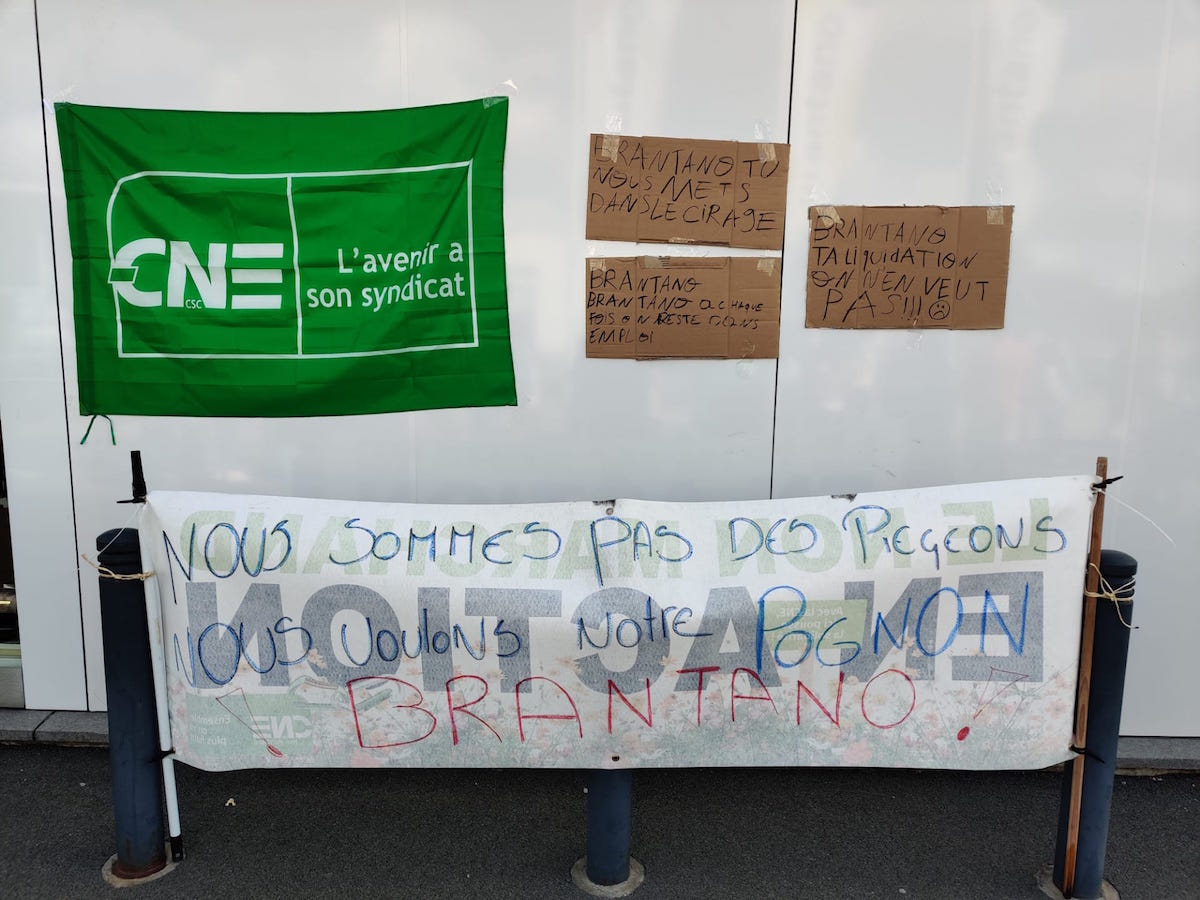 CNE
CSC
L'avenir a
son syndicat
BRANTANO TU
NOUS METS
DANS LE CIRAGE
BRANTANO
BRANTANO a CHAQUE
FOIS ON RESTE DANS
EMPLOI
BRANTANO
TA LIQUIDATION
ON N'EN VEUT
PAS!!!
NOUS SOMMES PAS DES PIEGEONS
NOUS VOULONS NOTRE POGNON
! BRANTANO !
EN ACTION
CNE
Ensemble
on